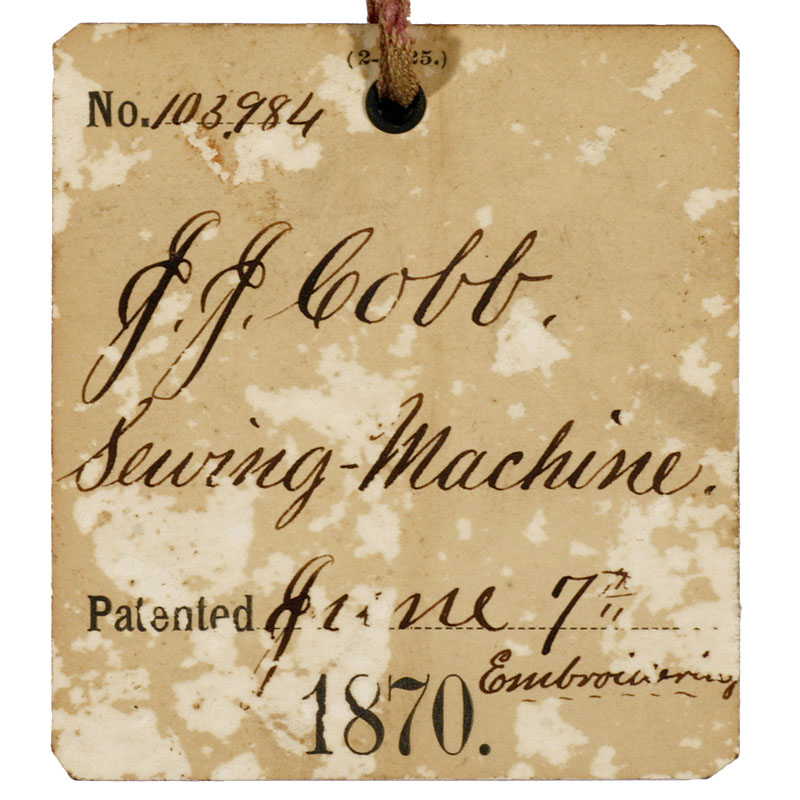 No. 103,984
J. J. Cobb.
Sewing-Machine.
Patented June 7th
1870.
Embroidering